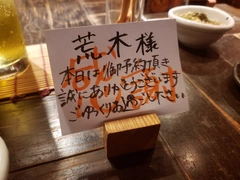 荒木様
本日は御予約頂き
誠にありがとうございます
ごゆっくりお過ごし下さい